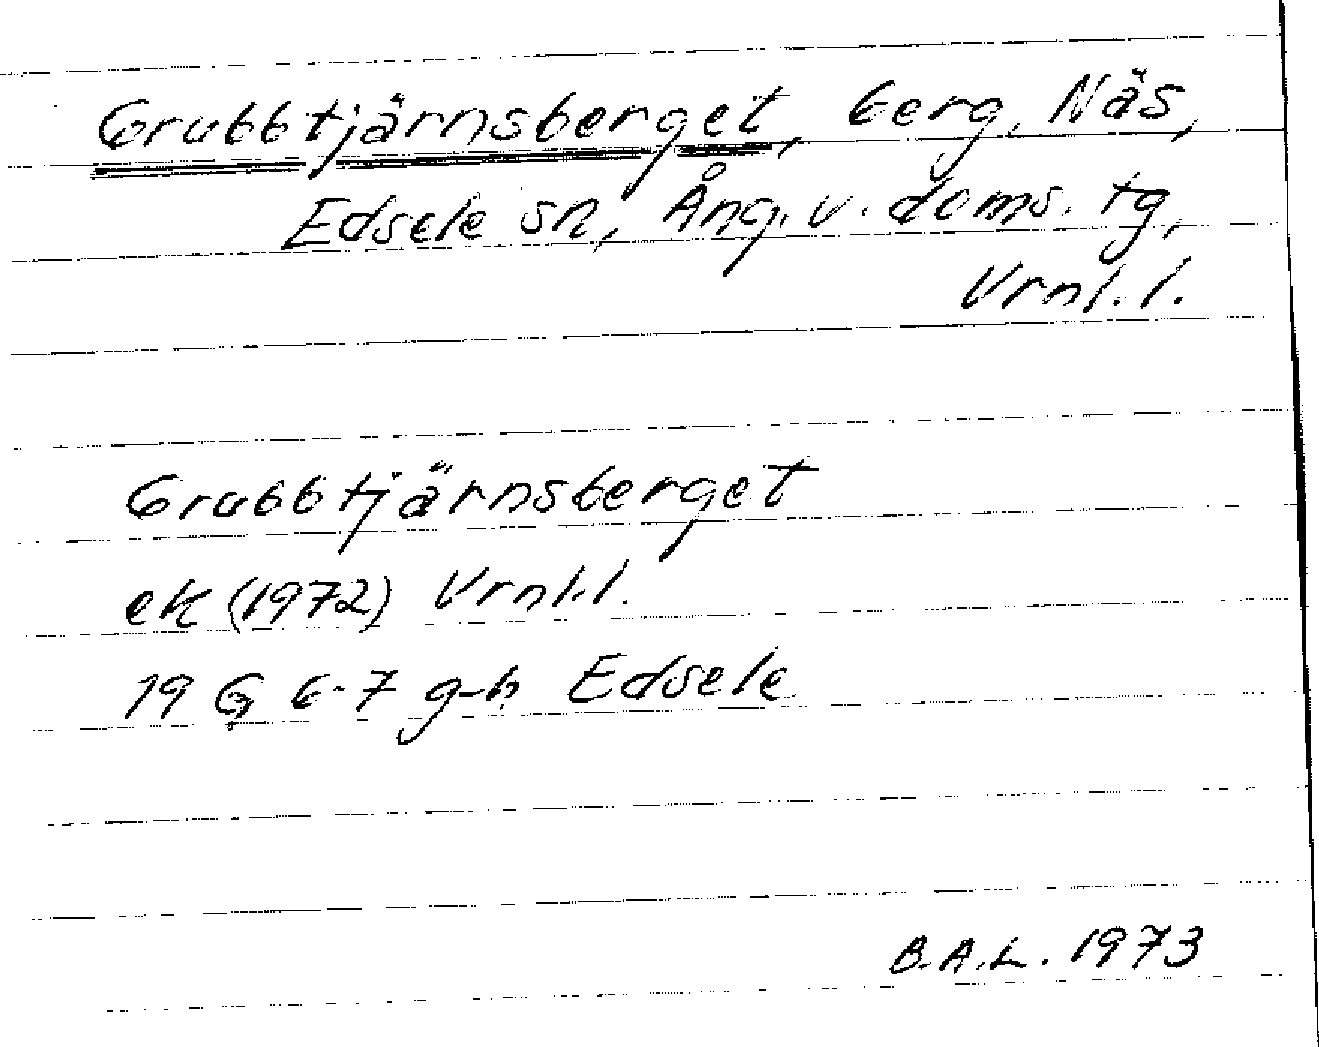 Grubbtjärnsberget, berg, Näs,
Edsele sn, Ång. v. doms. tg,
Vrnl. l.
Grubbtjärnsberget
ek (1972) Vrnl.l.
19 G 6-7 g-h Edsele
B.A.L. 1973